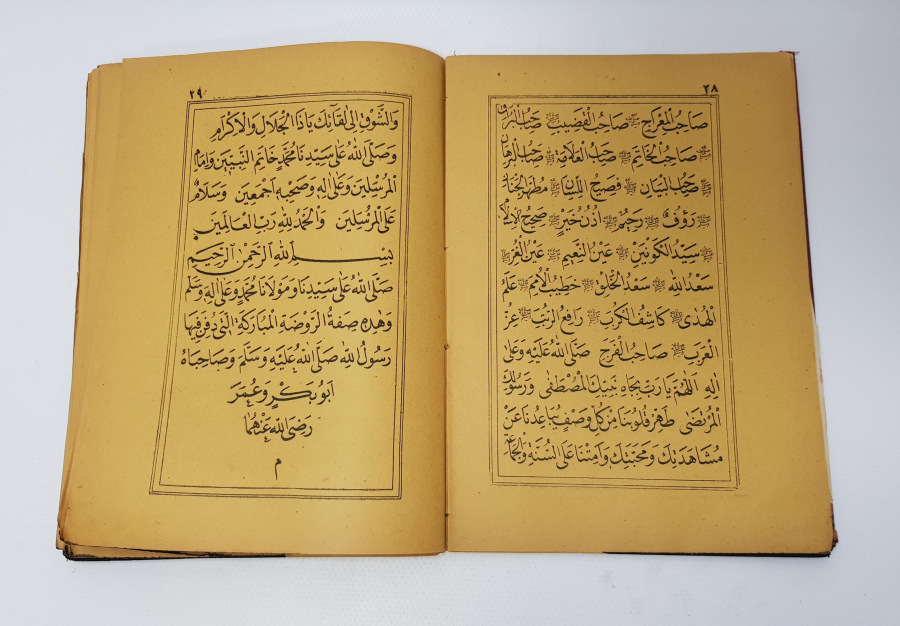 ٢٨
صَاحِبُ الْمِعْرَاجِ ﷺ صَاحِبُ الْقَضِيبِ ﷺ صَاحِبُ الْبُرَاقِ
ﷺ صَاحِبُ الْخَاتَمِ ﷺ صَاحِبُ الْعَلَامَةِ ﷺ صَاحِبُ الْبُرْهَانِ
ﷺ صَاحِبُ الْبَيَانِ ﷺ فَصِيحُ اللِّسَانِ ﷺ مُطَهَّرُ الْجَنَانِ
ﷺ رَؤُفٌ ﷺ رَحِيمٌ ﷺ أُذُنُ خَيْرٍ ﷺ صَحِيحُ الْاِسْلَامِ
ﷺ سَيِّدُ الْكَوْنَيْنِ ﷺ عَيْنُ النَّعِيمِ ﷺ عَيْنُ الْغُرِّ ﷺ
سَعْدُ اللهِ ﷺ سَعْدُ الْخَلْقِ ﷺ خَطِيبُ الْاُمَمِ ﷺ عَلَمُ
الْهُدٰى ﷺ كَاشِفُ الْكُرَبِ ﷺ رَافِعُ الرُّتَبِ ﷺ عِزُّ
الْعَرَبِ ﷺ صَاحِبُ الْفَرَجِ صَلَّى اللهُ عَلَيْهِ وَعَلٰى
اٰلِهِ اَللّٰهُمَّ يَا رَبِّ بِجَاهِ نَبِيِّكَ الْمُصْطَفٰى وَرَسُولِكَ
الْمُرْتَضٰى طَهِّرْ قُلُوبَنَا مِنْ كُلِّ وَصْفٍ يُبَاعِدُنَا عَنْ
مُشَاهَدَتِكَ وَمَحَبَّتِكَ وَاَمِتْنَا عَلَى السُّنَّةِ وَالْجَمَاعَةِ
٢٩
وَالشَّوْقِ اِلٰى لِقَائِكَ يَا ذَا الْجَلَالِ وَالْاِكْرَامِ
وَصَلَّى اللهُ عَلٰى سَيِّدِنَا مُحَمَّدٍ خَاتَمِ النَّبِيِّينَ وَاِمَامِ
الْمُرْسَلِينَ وَعَلٰى اٰلِهِ وَصَحْبِهِ اَجْمَعِينَ وَسَلَامٌ
عَلَى الْمُرْسَلِينَ وَالْحَمْدُ لِلّٰهِ رَبِّ الْعَالَمِينَ
بِسْمِ اللهِ الرَّحْمٰنِ الرَّحِيمِ
صَلَّى اللهُ عَلٰى سَيِّدِنَا وَمَوْلَانَا مُحَمَّدٍ وَعَلٰى اٰلِهِ وَسَلَّمَ
وَهٰذِهِ صِفَةُ الرَّوْضَةِ الْمُبَارَكَةِ الَّتِى دُفِنَ فِيهَا
رَسُولُ اللهِ صَلَّى اللهُ عَلَيْهِ وَسَلَّمَ وَصَاحِبَاهُ
اَبُو بَكْرٍ وَعُمَرَ
رَضِىَ اللهُ عَنْهُمَا
م